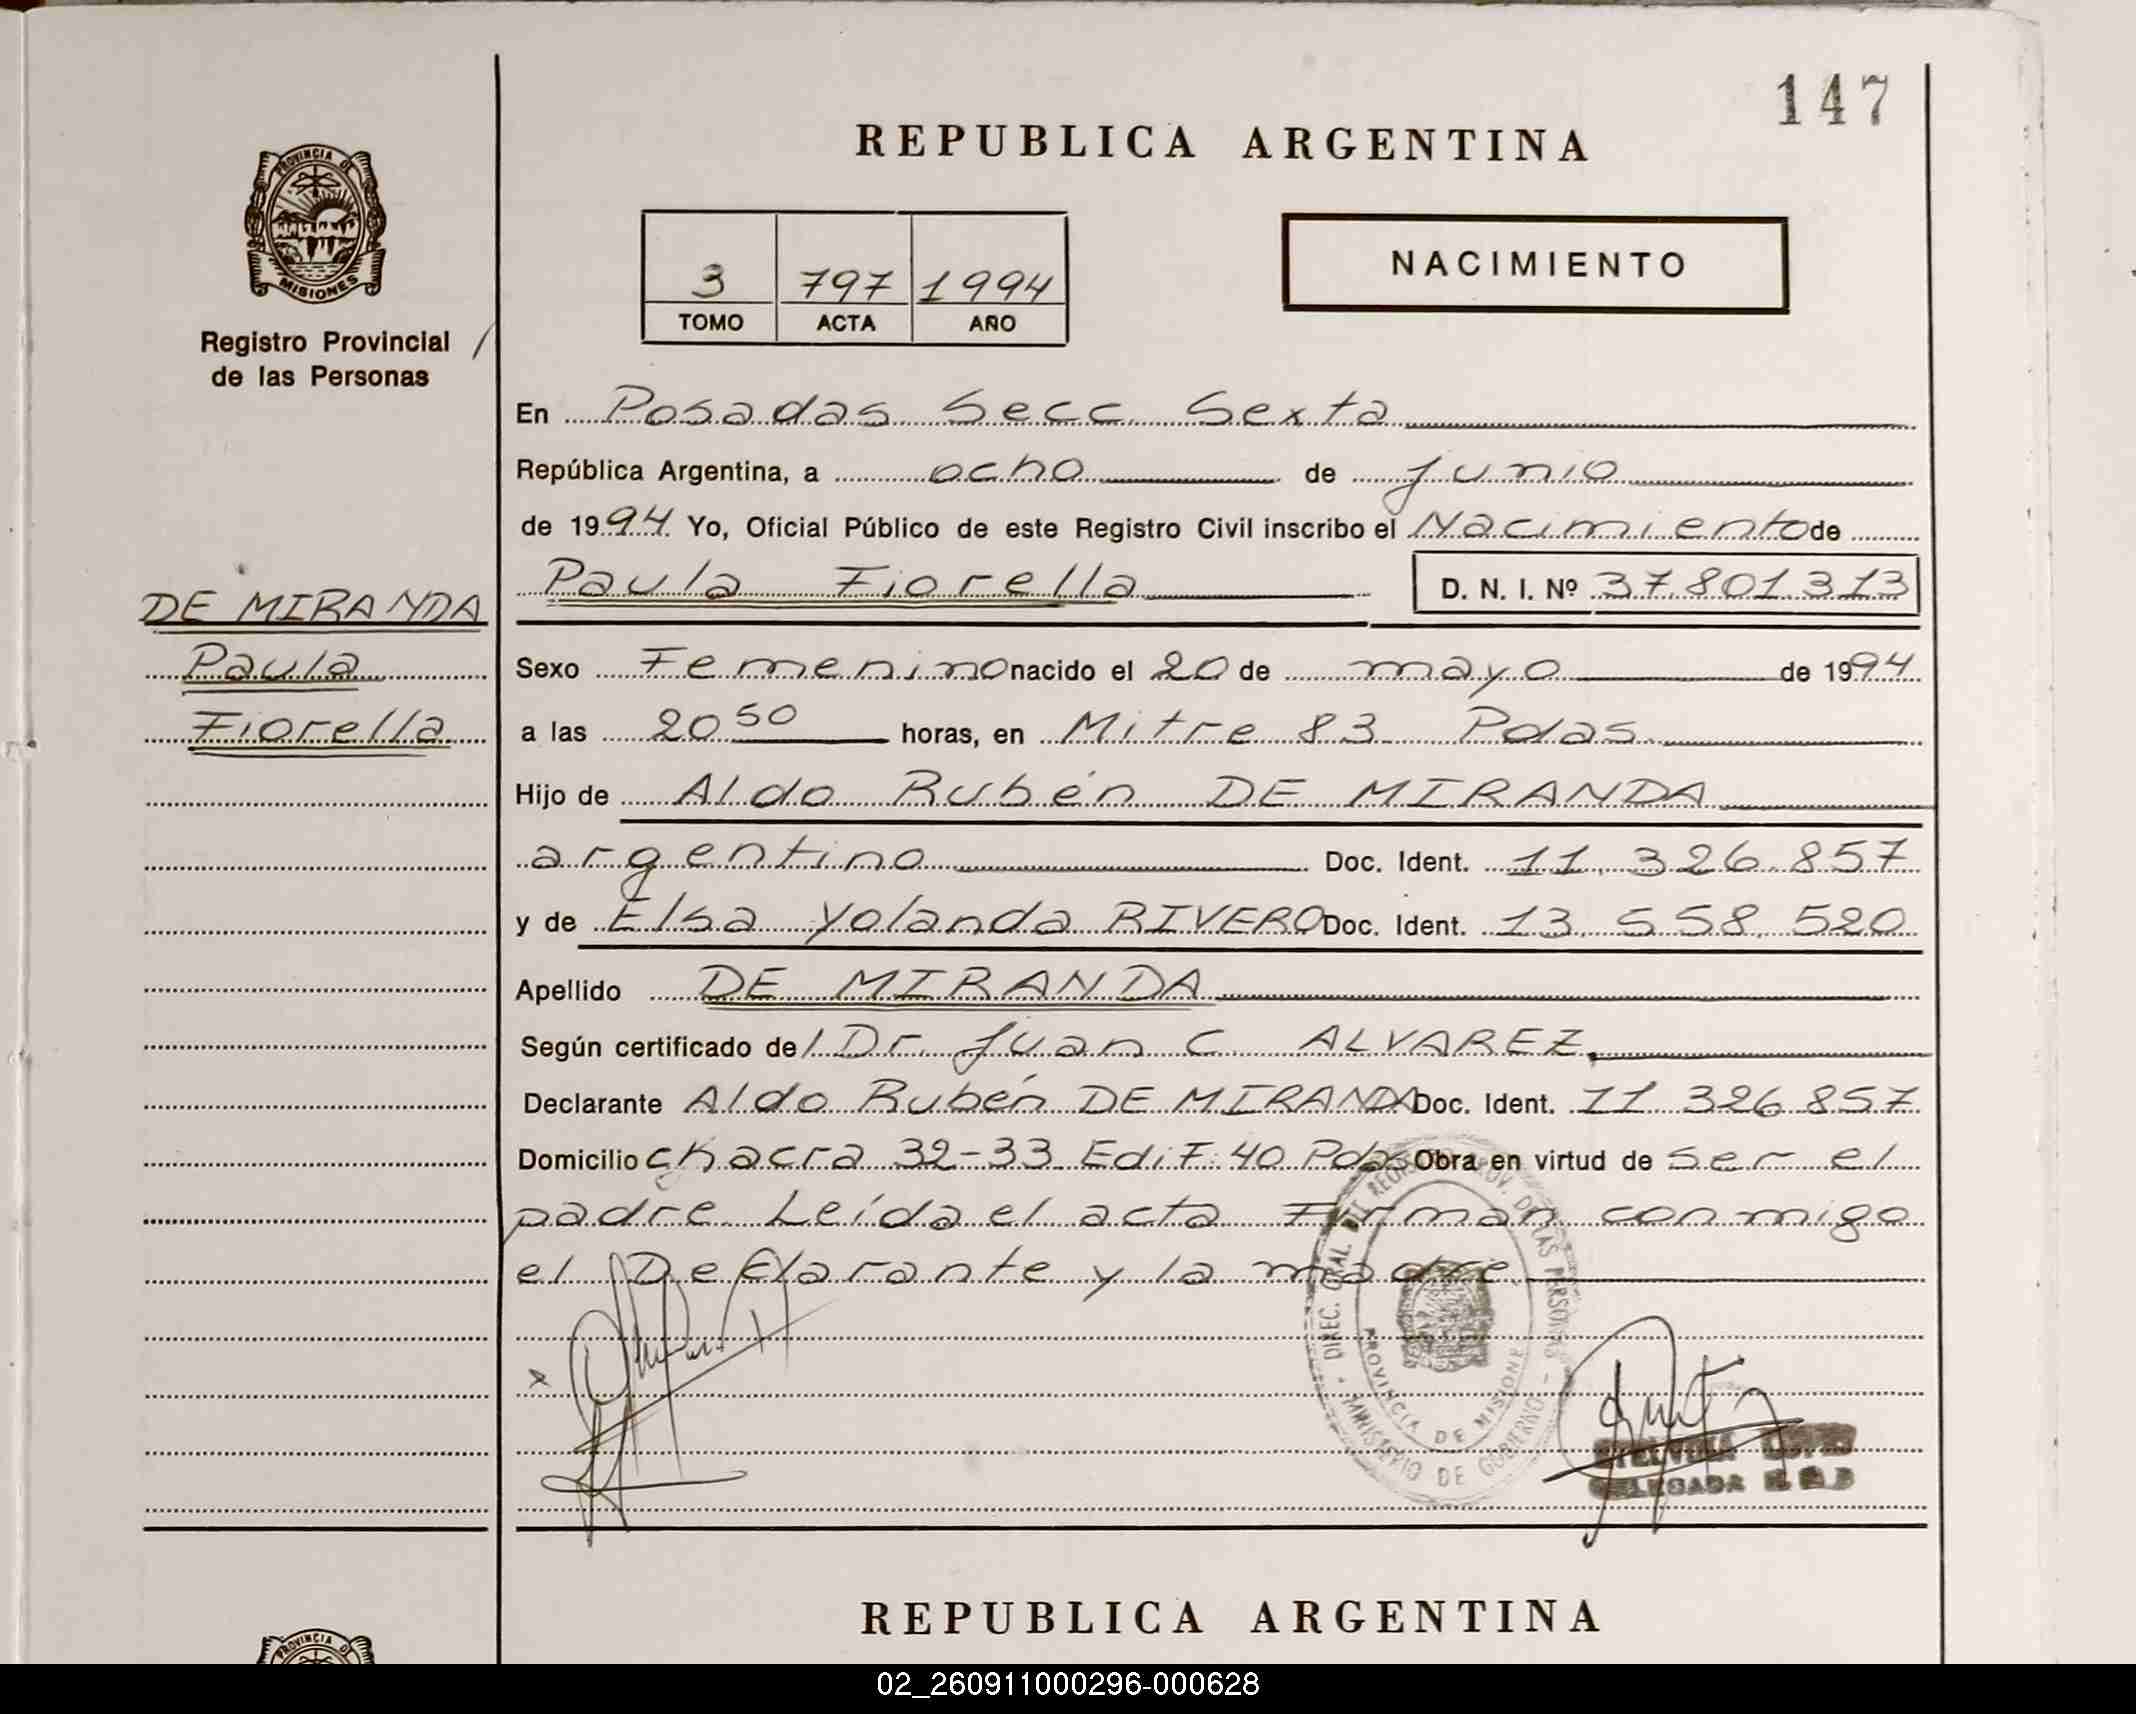 147
REPUBLICA ARGENTINA
PROVINCIA DE
MISIONES
Registro Provincial
de las Personas
3 797 1994
TOMO ACTA AÑO
NACIMIENTO
En Posadas Secc. Sexta
República Argentina, a ocho de junio
de 1994. Yo, Oficial Público de este Registro Civil inscribo el Nacimiento de
Paula Fiorella D. N. I. Nº 37.801.313
DE MIRANDA
Paula
Fiorella
Sexo Femenino nacido el 20 de mayo de 1994
a las 20 50 horas, en Mitre 83 Pdas.
Hijo de Aldo Rubén DE MIRANDA
argentino Doc. Ident. 11.326.857
y de Elsa Yolanda RIVERO Doc. Ident. 13.558.520
Apellido DE MIRANDA
Según certificado de/ Dr. Juan C ALVAREZ.
Declarante Aldo Rubén DE MIRANDA Doc. Ident. 11 326 857
Domicilio chacra 32-33 Edif. 40 Pdas Obra en virtud de ser el
padre. Leída el acta Firman conmigo
el Declarante y la madre
DIREC. GRAL. DEL REGISTRO PROV. DE LAS PERSONAS
PROVINCIA DE MISIONES
MINISTERIO DE GOBIERNO
DELEGADA
REPUBLICA ARGENTINA
02_260911000296-000628